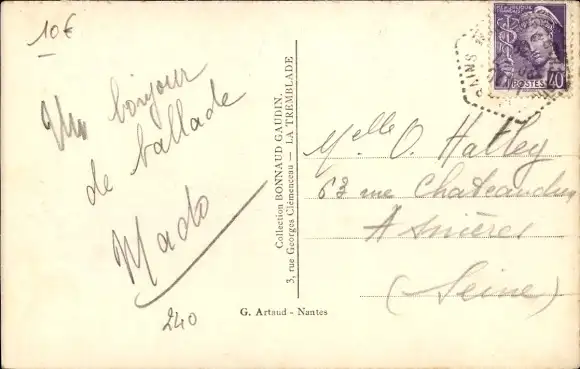 10€
Un bonjour
de ballade
Mado
240
Collection BONNAUD GAUDIN.
3, rue Georges Clémenceau — LA TREMBLADE
G. Artaud - Nantes
RÉPUBLIQUE FRANÇAISE
POSTES 40
Melle O. Halley
63 rue Chateaudun
Asnières
(Seine)